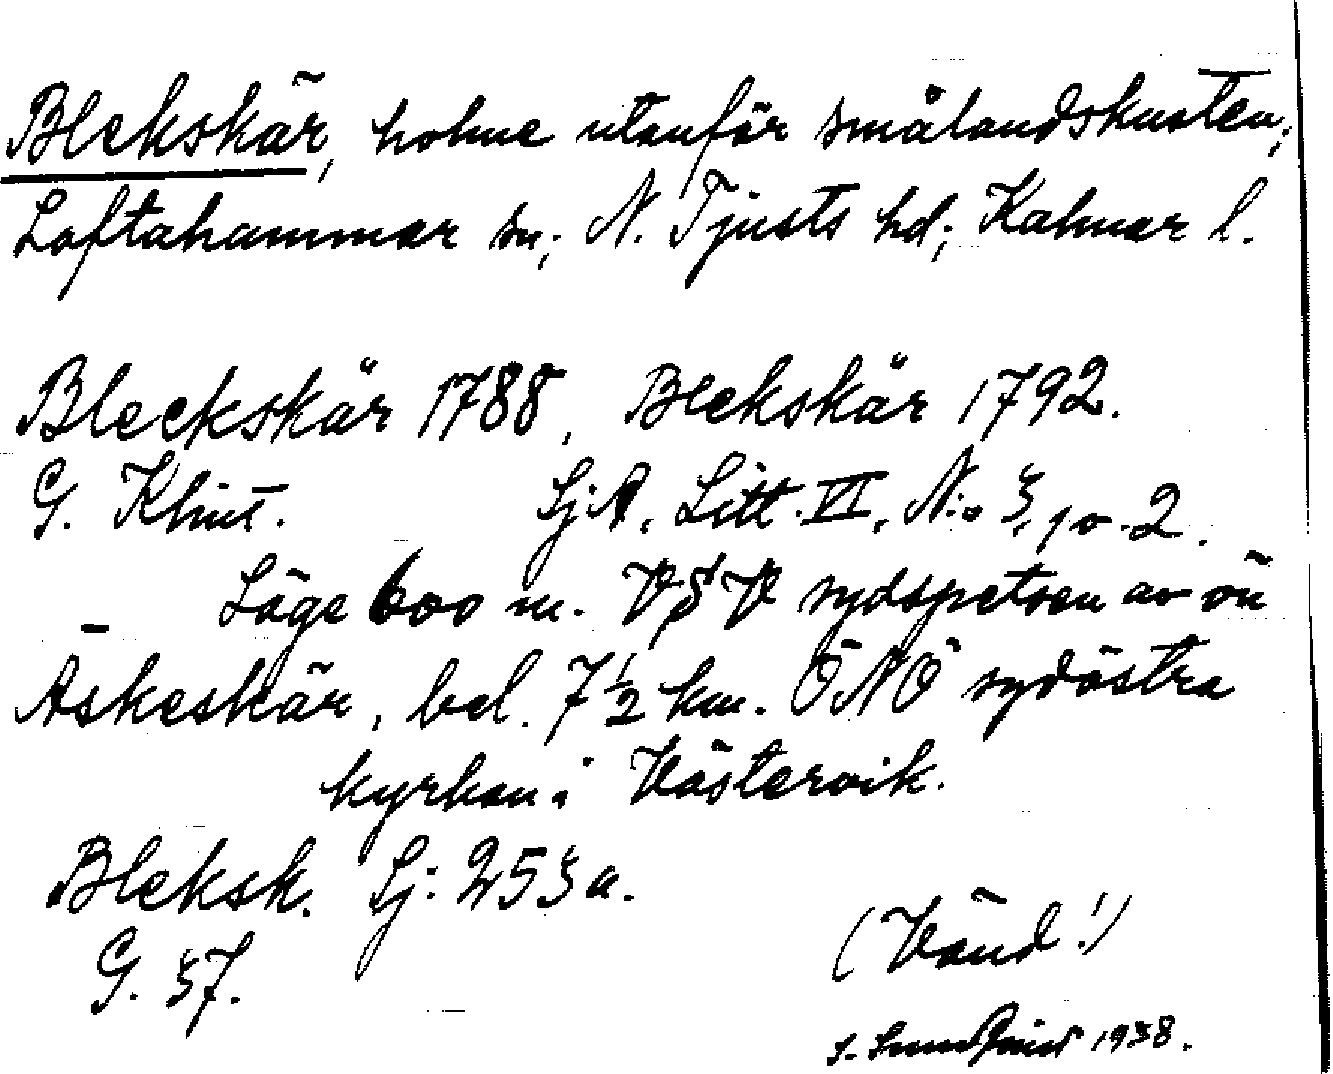 Blekskär, holme utanför smålandskusten,
Loftahammar sn, N. Tjusts hd, Kalmar l.
Bleckskär 1788, Blekskär 1792.
G. Klint. Sj.A. Litt. VI, N:o 3, p. 2.
Läge 600 m. VSV sydspetsen av ön
Äskeskär, bel. 7½ km. ÖNÖ sydöstra
kyrkan i Västervik.
Bleksk. Sj: 253a.
G. 37.
(Vänd!)
S. 1938.